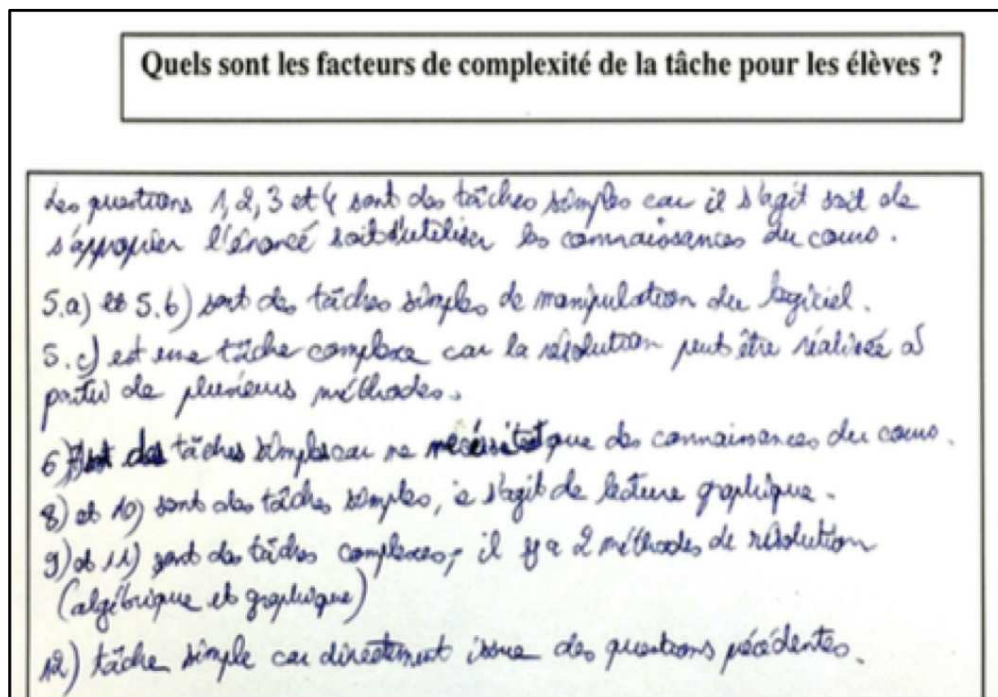 Quels sont les facteurs de complexité de la tâche pour les élèves ?
Les questions 1, 2, 3 et 4 sont des tâches simples car il s'agit soit de
s'approprier l'énoncé soit d'utiliser les connaissances du cours.
5.a) et 5.b) sont des tâches simples de manipulation du logiciel.
5.c) est une tâche complexe car la résolution peut être réalisée à
partir de plusieurs méthodes.
6) tâches simples car ne nécessitent que des connaissances du cours.
8) et 10) sont des tâches simples, il s'agit de lecture graphique.
9) et 11) sont des tâches complexes, il y a 2 méthodes de résolution
(algébrique et graphique)
12) tâche simple car directement issue des questions précédentes.